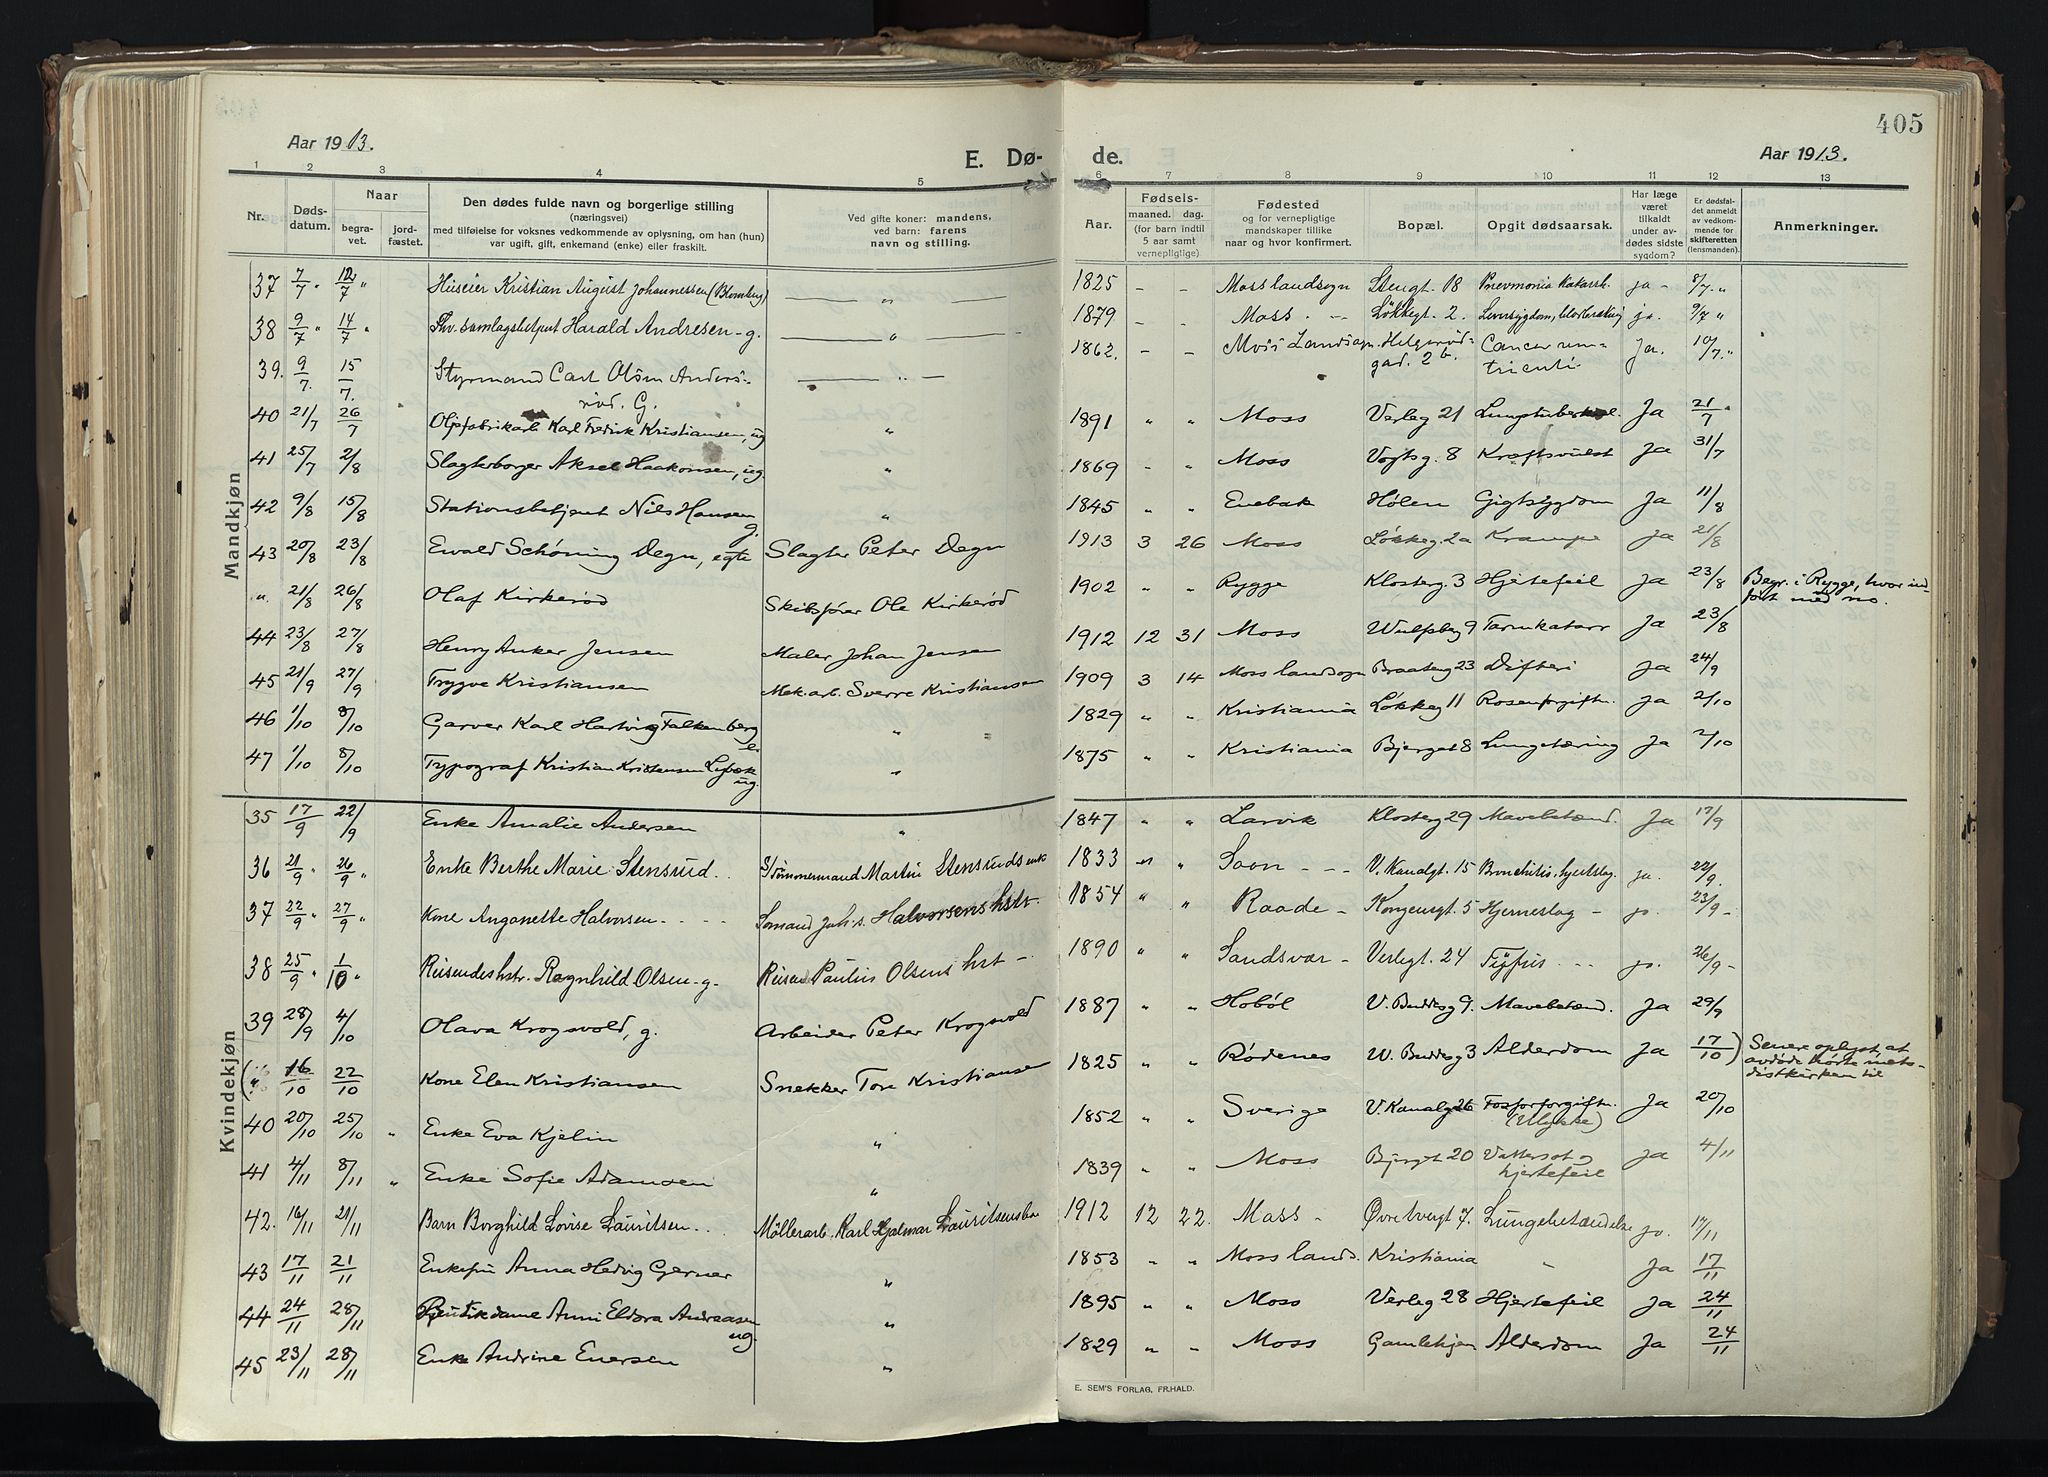 405
Aar 1913.
E. Dø-
de.
Aar 1913.
1 2 3 4 5 6 7 8 9 10 11 12 13
Nr.
Døds-
datum.
Naar
begra-
vet.
jord-
fæstet.
Den dødes fulde navn og borgerlige stilling
(næringsvei)
med tilføielse for voksnes vedkommende av oplysning, om han (hun)
var ugift, gift, enkemand (enke) eller fraskilt.
Ved gifte koner: mandens,
ved barn: farens
navn og stilling.
Aar.
Fødsels-
maaned. dag.
(for barn indtil
5 aar samt
vernepligtige)
Fødested
og for vernepligtige
mandskaper tillike
naar og hvor konfirmert.
Bopæl.
Opgit dødsaarsak.
Har læge
været
tilkaldt
under av-
dødes sidste
sygdom?
Er dødsfal-
det anmeldt
av vedkom-
mende for
skifteretten
(lensmanden).
Anmerkninger.
Mandkjøn
37 7/7 " 12/7 " Huseier Kristian August Johannessen (Blomberg) " 1825 - - Moss landsogn Stengt. 18 Pnevmonia Katarrh. ja - 8/7 "
38 9/7 " 14/7 " Harald Andresen - g. " 1879 - - Moss. - - Løkkegt. 2. ja. 9/7 "
39. 9/7. 15/7. Styrmand Carl Olsen Anders-
rød. G. " 1862. - - Moss Landsogn. Helgerød-
gad. 2 b. Cancer ven-
triculi. Ja. 10/7. "
40 21/7 26/7 Oljefabrikarb. Karl Fredrik Kristiansen, ug " 1891 " " Moss Verleg 21 Lungetuberkul. Ja 21/7 "
41 25/7 2/8 Slagterborger Aksel Haakonsen, ug. " 1869 - " Moss Vogtsg. 8 Kræftsvulst Ja 31/7
42 9/8 15/8 Stationsbetjent Nils Hansen
g. " 1845 " " Enebak Hølen Gigtsygdom Ja 11/8
43 20/8 23/8 Ewald Schøning Degn, egte Slagter Peter Degn 1913 3 26 Moss Løkkeg. 2a Krampe Ja 21/8
" 21/8 26/8 Olaf Kirkerød Skibsfører Ole Kirkerød 1902 " " Rygge Klosterg. 3 Hjertefeil Ja 23/8 Begr. i Rygge, hvor ind-
ført med no.
44 23/8 27/8 Henry Anker Jensen Maler Johan Jensen 1912 12 31 Moss Wulfsbg 9 Tarmkatarr Ja 23/8
45 21/9 27/9 Trygve Kristiansen Mek. arb. Sverre Kristiansen 1909 3 14 Moss landsogn Braateng 23 Difteri Ja 24/9
46 1/10 8/10 Garver Karl Hartvig Falkenberg " 1829 " " Kristiania Løkkeg 11 Rosenforgiftn. Ja 2/10
47 1/10 8/10 Typograf Kristian Kristensen
ug. " 1875 " " Kristiania Bjerget 8 Lungetæring Ja 2/10
Kvindekjøn
35 17/9 22/9 Enke Amalie Andersen " 1847 " " Larvik Klosterg 29 Mavebetænd. Ja 17/9
36 21/9 " 26/9 " Enke Berthe Marie Stensrud. Tømmermand Martin Stensruds enk 1833 " " Soon - - - V. Kanalgt. 15 Bronchitis, hjertslag ja. 22/9.
37 22/9 " 27/9 " Kone Anganette Halvorsen. - - - Sømand Joh.s. Halvorsens hstr. 1854 " " Raade - Kongensgt. 5 Hjerneslag - ja. 23/9 -
38 25/9 " 1/10 " Reisendes hstr. Ragnhild Olsen - g. Reisend Paulus Olsens hst - 1890 " " Sandsvær - Verlegt. 24 Tyfus - - - ja. 26/9 -
39 28/9 4/10 Olava Krogsvold, g. Arbeider Peter Krogsvold 1887 " " Hobøl V. Buddesg 9. Mavebetænd. Ja 29/9
(" 16/10 22/10 Kone Elen Kristiansen Snekker Tore Kristiansen 1825 " " Rødenes W. Buddesg 3 Alderdom Ja 17/10 ) Senere oplyst, at
avdøde hørte met-
distkirken til
40 20/10 25/10 " Enke Eva Kjelin " 1852 " " Sverige V. Kanalg 26 Fosforforgiftn.
(Ulykke) Ja 20/10
41 4/11 8/11 " Enke Sofie Adamsen " 1839 " " Moss Bjergt 20 Vattersot og
hjertefeil Ja 4/11
42. 16/11 21/11 Barn Borghild Lovise Lauritsen. . Møllerarb. Karl Hjalmar Lauritsens ba 1912 12 22. Moss - Øvre tvergt 7. Lungebetændelse ja. 17/11
43 17/11 21/11 Enkefru Anna Hedvig Gerner " 1853 " " Moss lands. Kristiania " Ja 17/11
44 24/11 28/11 Butikdame Anni Eldora Andreasen
ug. " 1895 " " Moss Verleg 28 Hjertefeil Ja 24/11
45 23/11 28/11 Enke Andrine Enersen " 1829 " " Moss Gamlehjem Alderdom Ja 24/11
E. SEM'S FORLAG, FR.HALD.